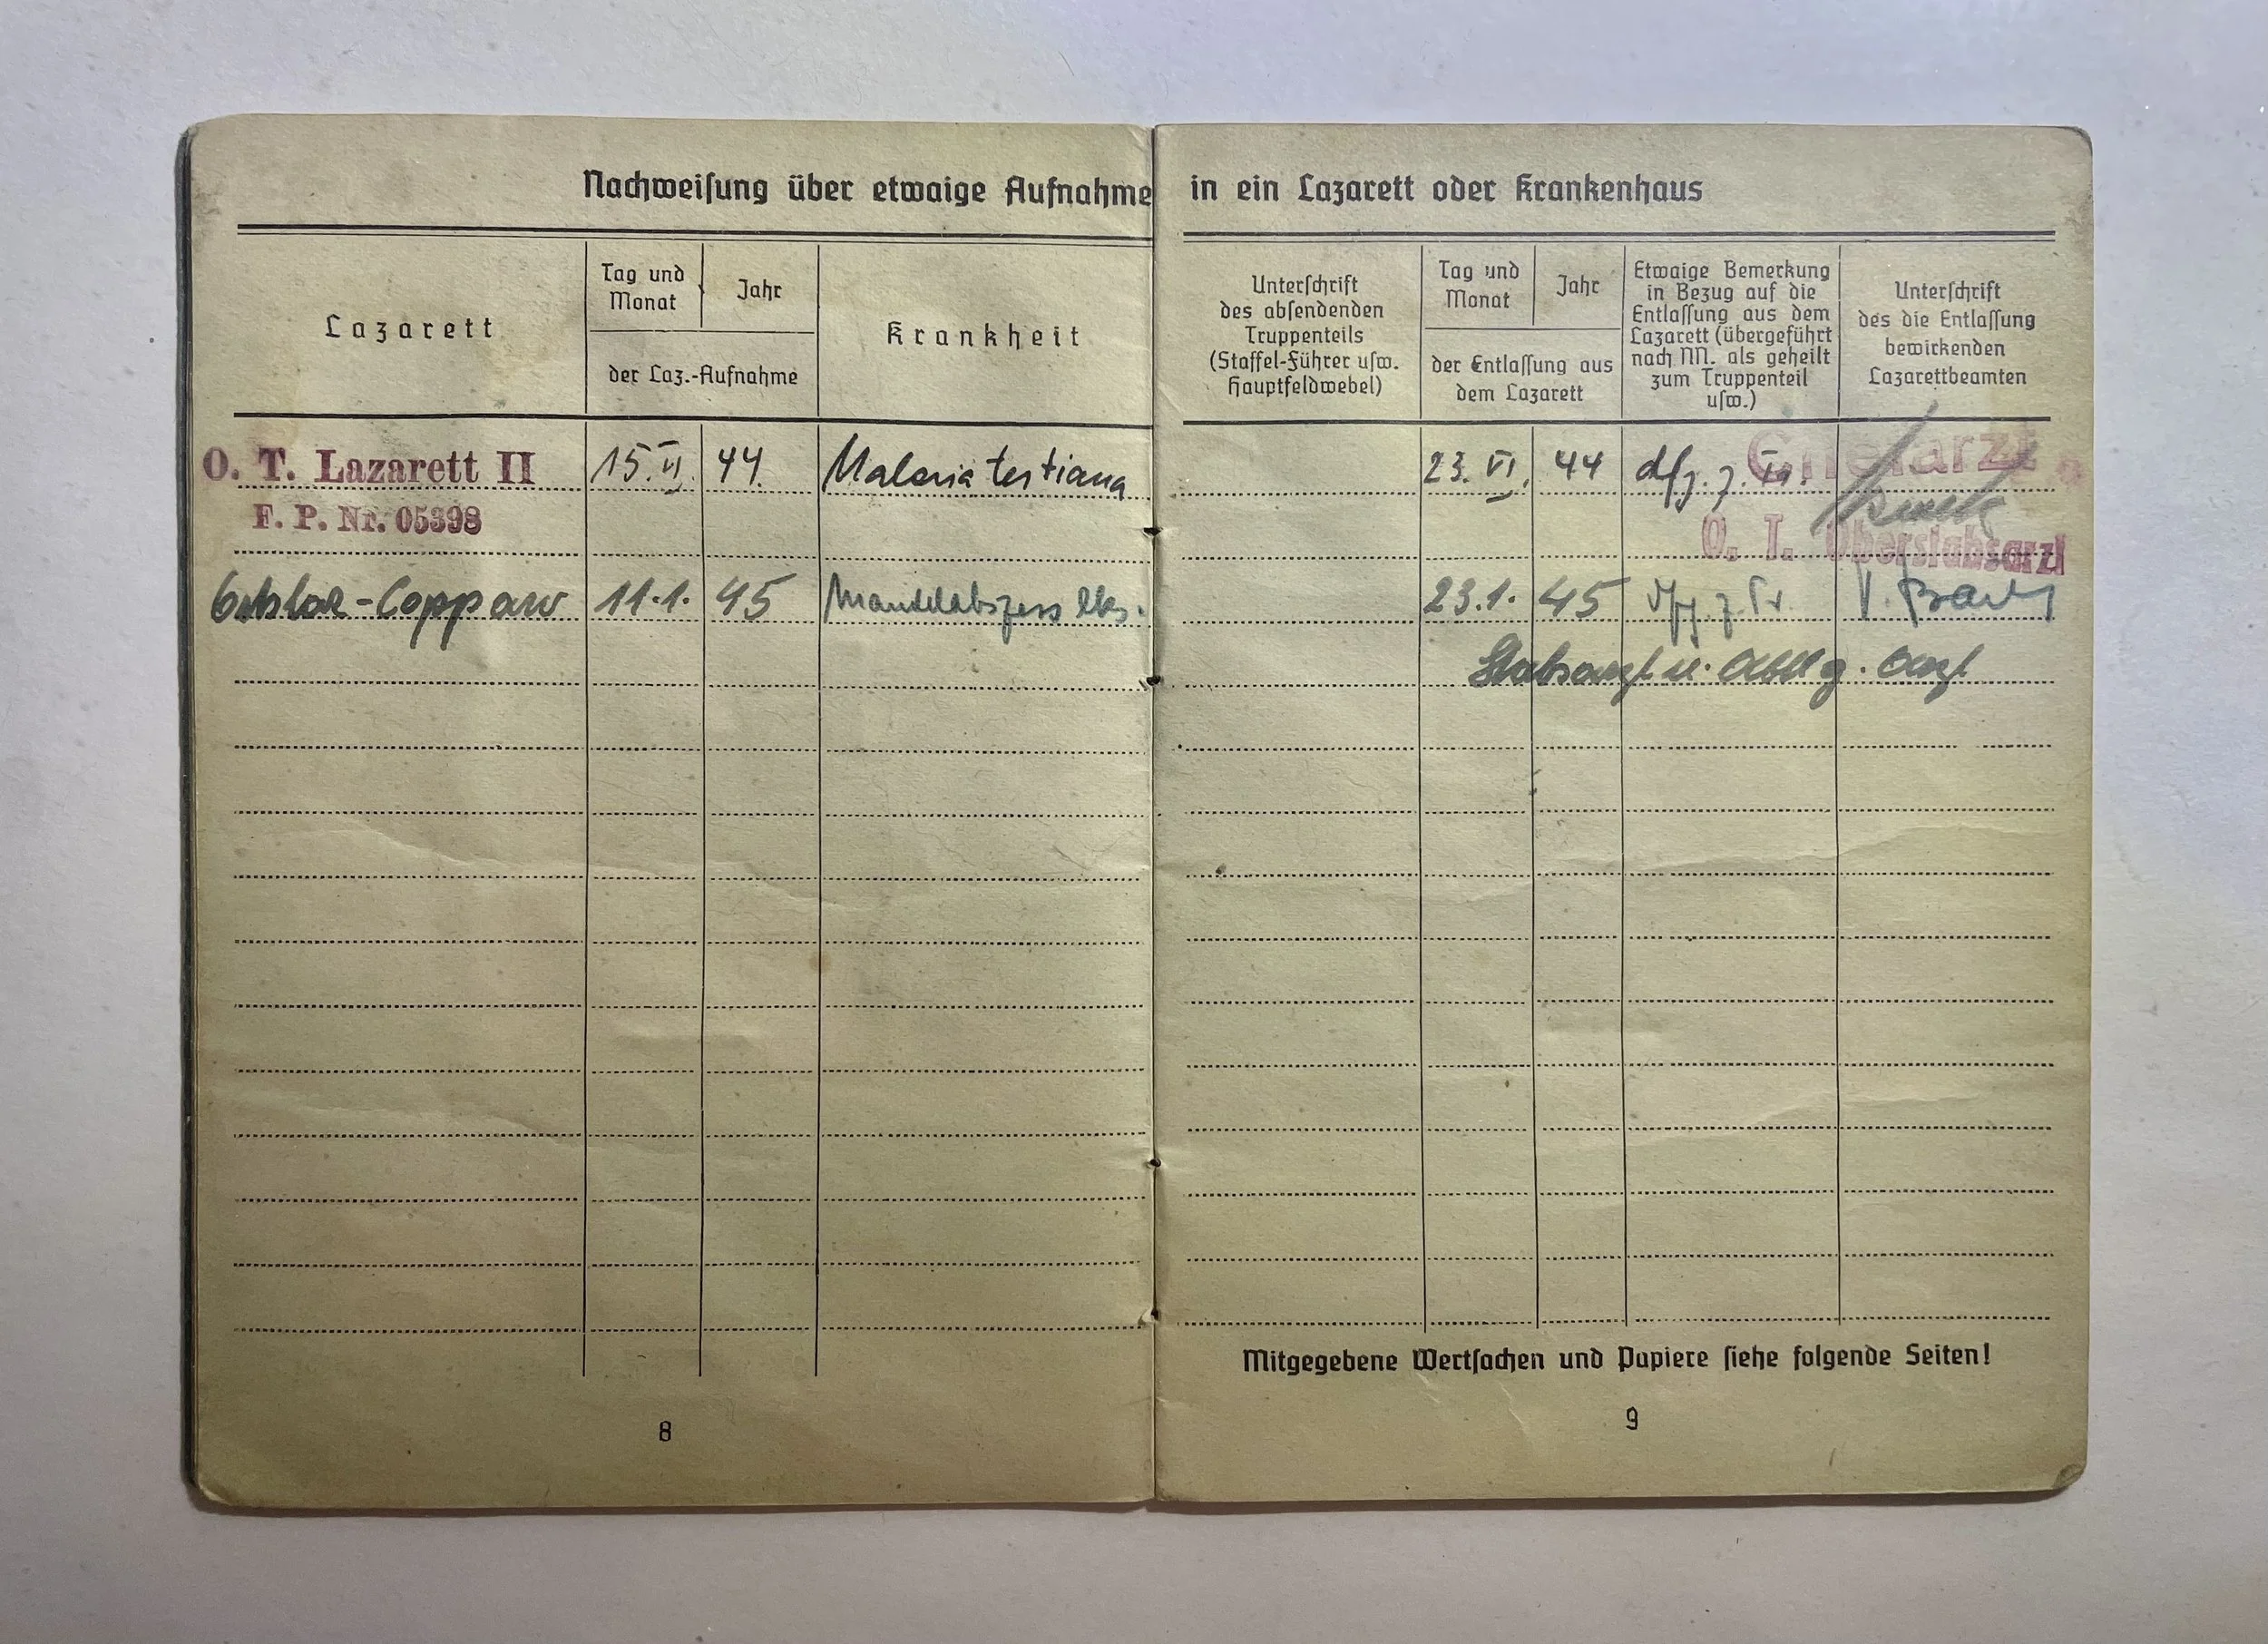 Nachweiſung über etwaige Aufnahme in ein Lazarett oder Krankenhaus
Lazarett
Tag und
Monat
Jahr
der Laz.-Aufnahme
Krankheit
Unterſchrift
des abſendenden
Truppenteils
(Staffel-Führer uſw.
Hauptfeldwebel)
Tag und
Monat
Jahr
der Entlaſſung aus
dem Lazarett
Etwaige Bemerkung
in Bezug auf die
Entlaſſung aus dem
Lazarett (übergeführt
nach NN. als geheilt
zum Truppenteil
uſw.)
Unterſchrift
des die Entlaſſung
bewirkenden
Lazarettbeamten
O. T. Lazarett II 15. VI. 44. Malaria tertiana 23. VI. 44 Chefarzt
F. P. Nr. 05398 O. T. Oberstabsarzt
11.1. 45 Mandelabszess lks. 23.1. 45
Stabsarzt u. Abtlg. Arzt
Mitgegebene Wertſachen und Papiere ſiehe folgende Seiten!
8
9